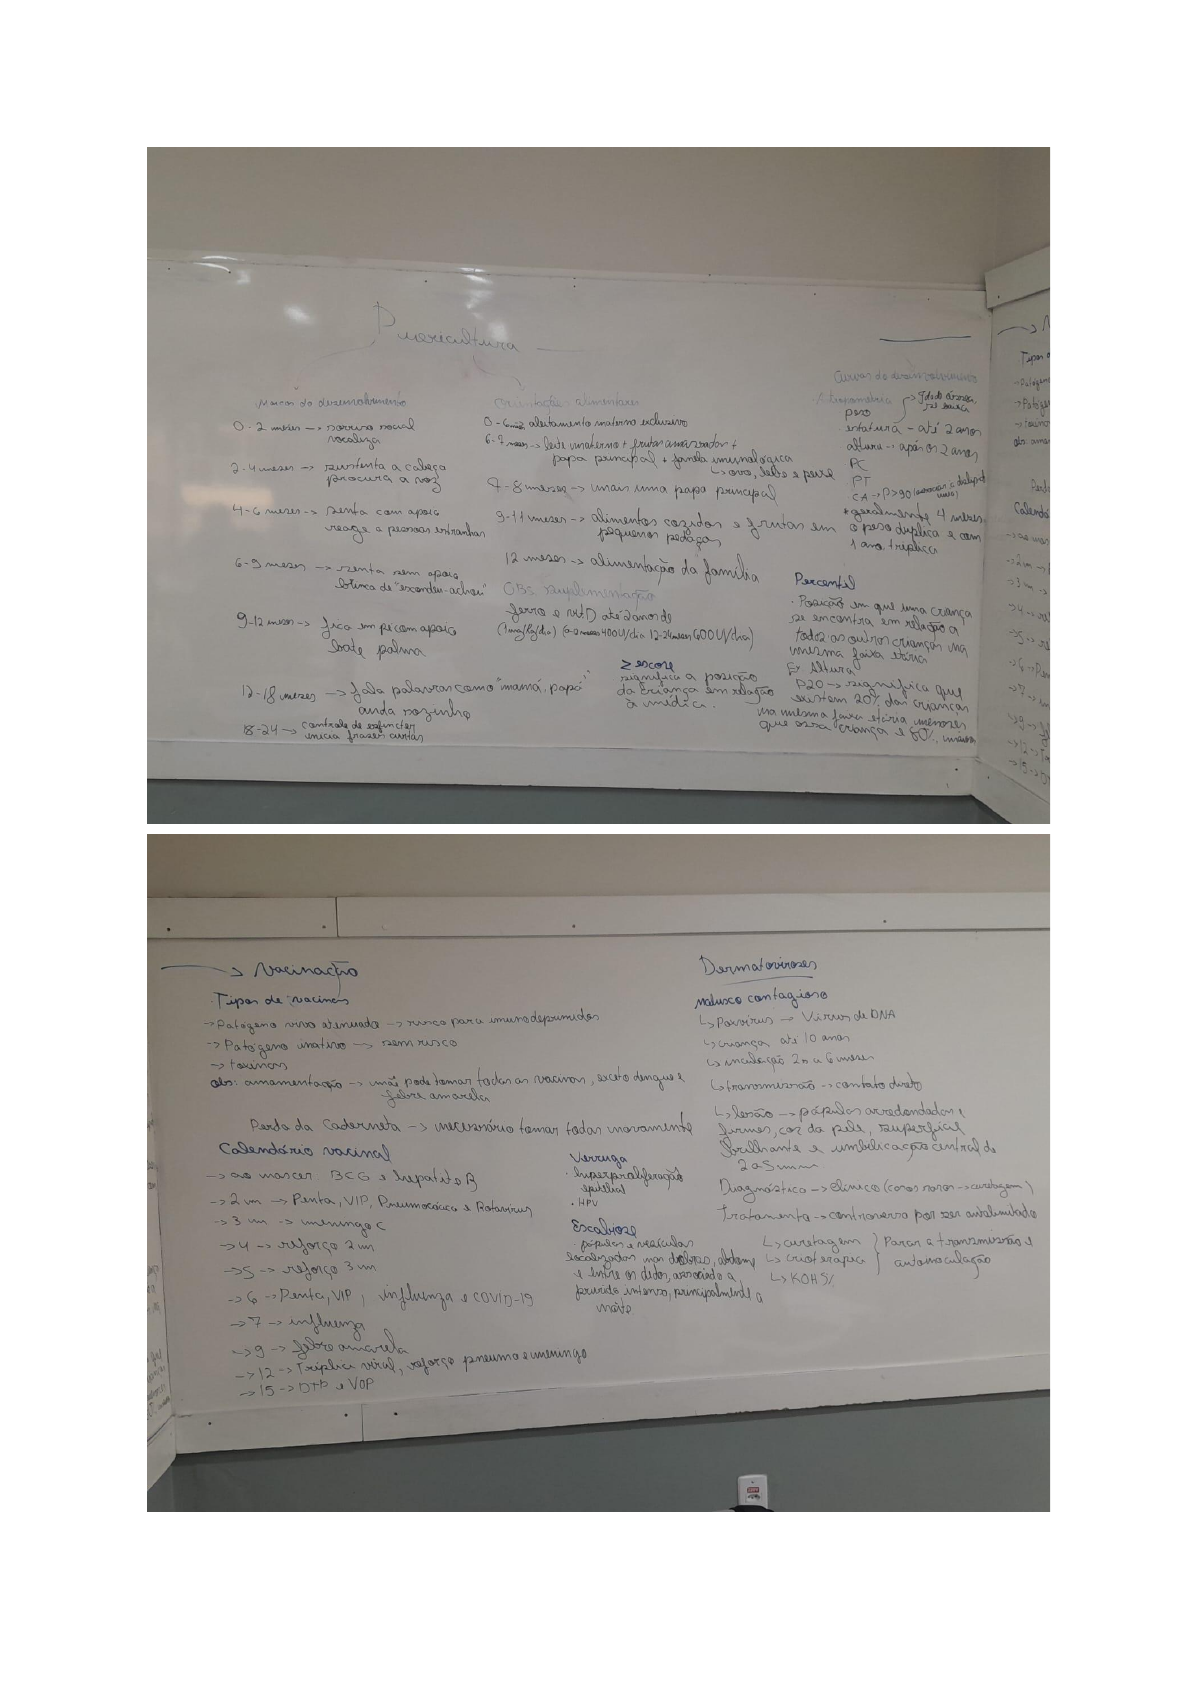 Puericultura
Marcos do desenvolvimento
0-2 meses → sorriso social
vocaliza
2-4 meses → sustenta a cabeça
procura a voz
4-6 meses → senta com apoio
reage a pessoas estranhas
6-9 meses → senta sem apoio
brinca de "escondeu-achou"
9-12 meses → fica em pé com apoio
bate palma
12-18 meses → fala palavras como "mamá, papá"
anda sozinho
18-24 → controle de esfíncter
inicia frases curtas
Orientações alimentares
0-6 meses aleitamento materno exclusivo
6-7 meses → leite materno + frutas amassadas +
papa principal + janela imunológica
↳ ovo, leite e peixe
7-8 meses → mais uma papa principal
9-11 meses → alimentos cozidos e frutas em
pequenos pedaços
12 meses → alimentação da família
OBS suplementação
ferro e vit.D até 2 anos de
(1mg/kg/dia) (0-12 meses 400UI/dia 12-24 meses 600UI/dia)
Z escore
significa a posição
da criança em relação
a média.
Curvas do desenvolvimento
Antropometria
peso
estatura - até 2 anos
altura → após os 2 anos
PC
PT
CA → P>90
*geralmente 4 meses
o peso duplica e com
1 ano triplica
Percentil
· Posição em que uma criança
se encontra em relação a
todas as outras crianças na
mesma faixa etária
Ex Altura
P20 → significa que
existem 20% das crianças
na mesma faixa etária menores
que essa criança e 80%
→ Vacinação
· Tipos de vacinas
→ Patógeno vivo atenuado → risco para imunodeprimidos
→ Patógeno inativo → sem risco
→ toxinas
obs: amamentação → mãe pode tomar todas as vacinas, exceto dengue e
febre amarela
Perda da Caderneta → necessário tomar todas novamente
Calendário vacinal
→ ao nascer BCG e hepatite B
→ 2 m → Penta, VIP, Pneumocócica e Rotavírus
→ 3 m → meningo C
→ 4 → reforço 2 m
→ 5 → reforço 3 m
→ 6 → Penta, VIP, influenza e COVID-19
→ 7 → influenza
→ 9 → febre amarela
→ 12 → Tríplice viral, reforço pneumo e meningo
→ 15 → DTP e VOP
Verruga
· hiperproliferação
epitelial
· HPV
Escabiose
· pápulas e vesículas
localizadas nas dobras, abdome
e entre os dedos, associado a
prurido intenso, principalmente a
noite.
Dermatoviroses
Molusco contagioso
↳ Poxvírus → Vírus de DNA
↳ criança até 10 anos
↳ inculação 2s a 6 meses
↳ transmissão → contato direto
↳ lesão → pápulas arredondadas e
firmes, cor da pele, superficial
brilhante e umbilicação central de
2 a 5 mm
Diagnóstico → Clínico (casos raros → curetagem)
tratamento → controverso por ser autolimitado
↳ curetagem
↳ crioterapia
↳ KOH 5%
Parar a transmissão e
autoinoculação